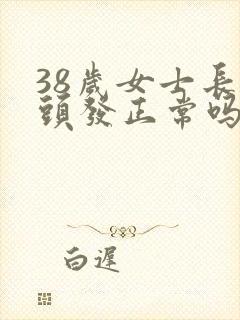 38歲女士長
頭發正常嗎
白遲